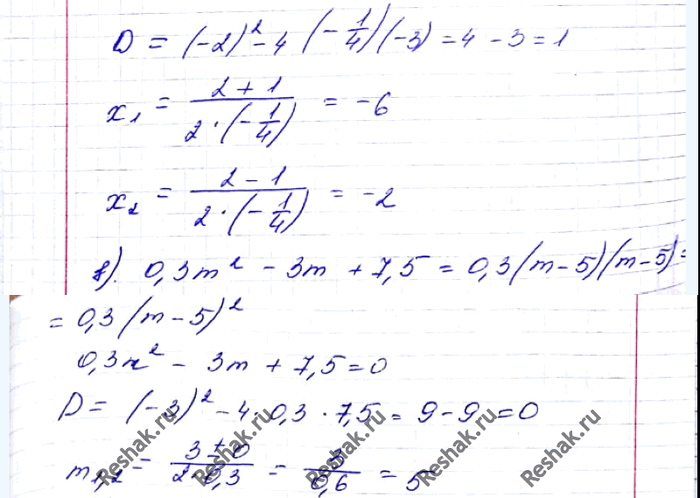 D = (-2)² - 4 (-1/4)(-3) = 4 - 3 = 1
x₁ = (2 + 1)/(2 · (-1/4)) = -6
x₂ = (2 - 1)/(2 · (-1/4)) = -2
в). 0,3m² - 3m + 7,5 = 0,3(m-5)(m-5) =
= 0,3(m-5)²
0,3x² - 3m + 7,5 = 0
D = (-3)² - 4 · 0,3 · 7,5 = 9 - 9 = 0
m₁,₂ = (3 ± 0)/(2 · 0,3) = 3/0,6 = 5
Reshak.ru Reshak.ru Reshak.ru Reshak.ru